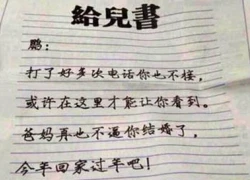 給兒書
鹏：
打了好多次电话你也不接，
或许在这里才能让你看到。
爸妈再也不逼你结婚了，
今年回家过年吧！